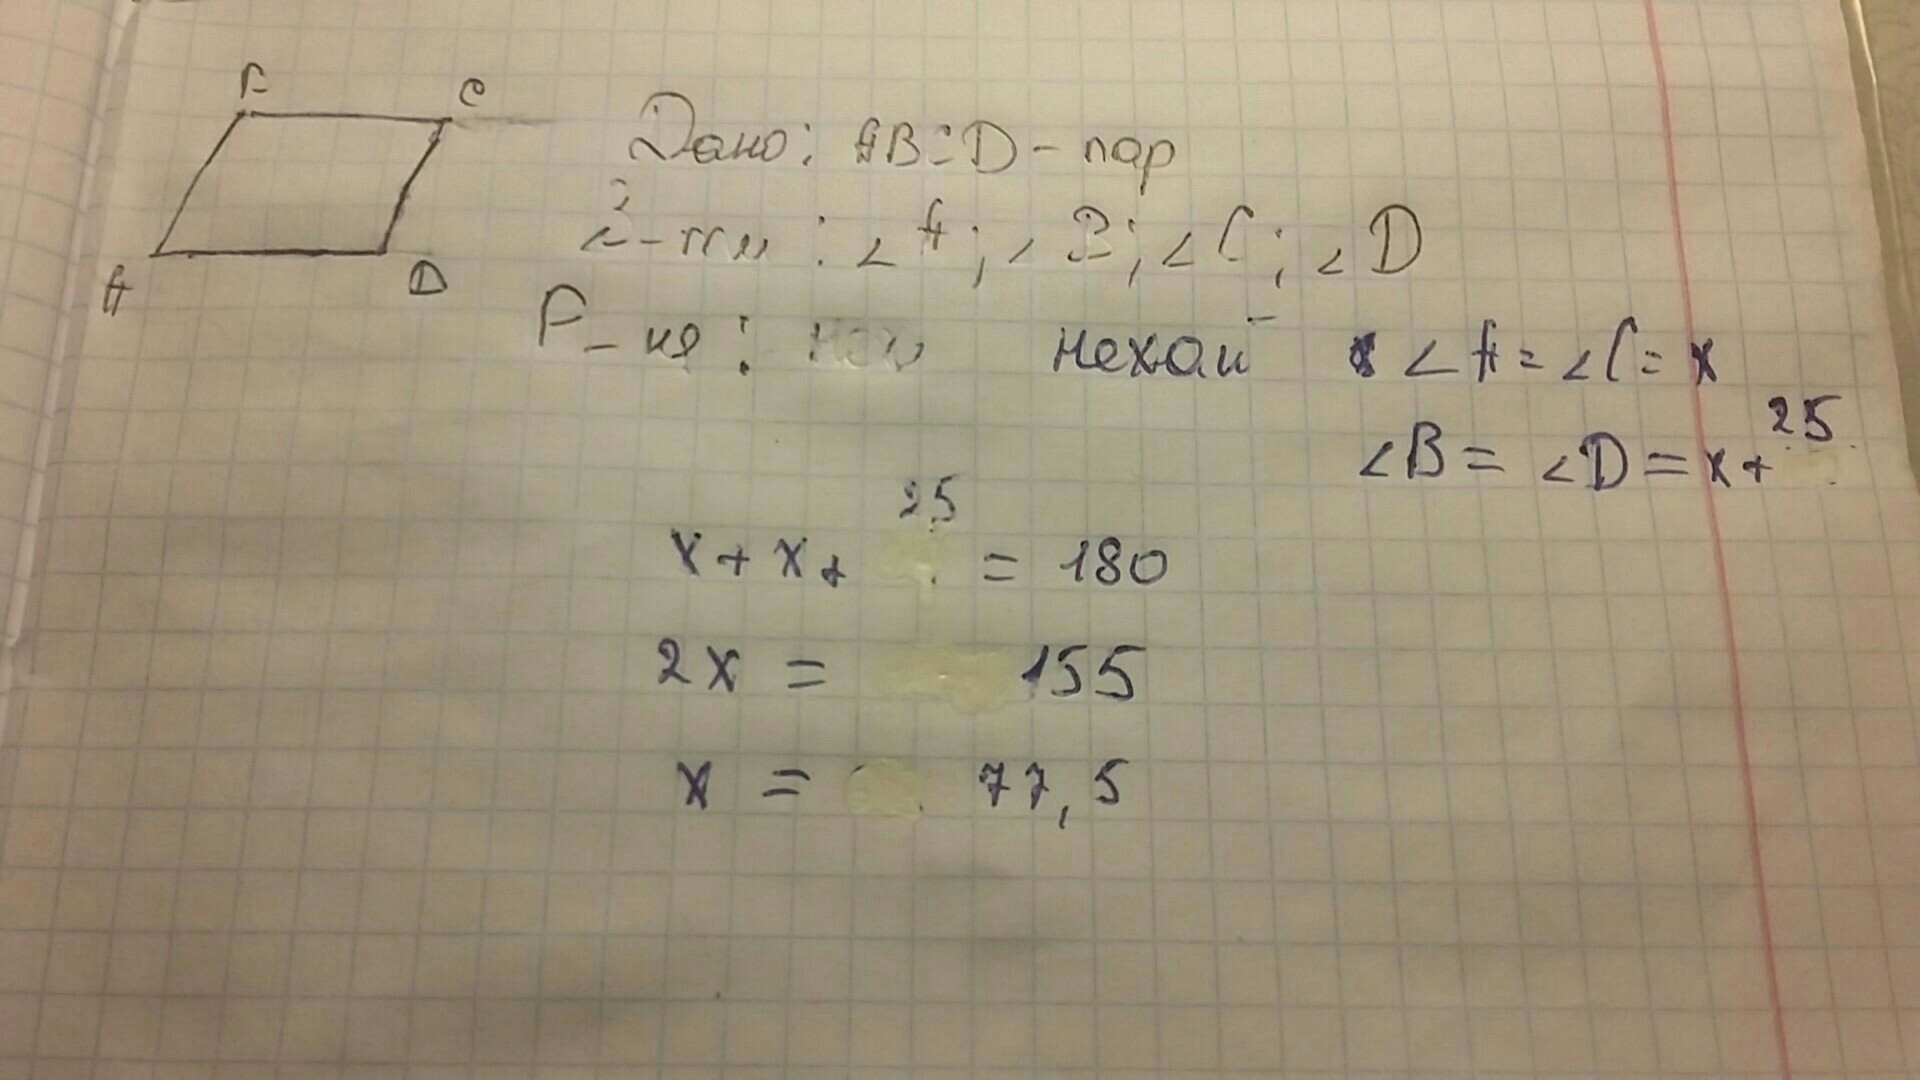 C
A
D
Дано: ABCD - пар
∠A; ∠B; ∠C; ∠D
Р-ня: нехай ∠A = ∠C = x
∠B = ∠D = x + 25
x + x + 25 = 180
2x = 155
x = 77,5